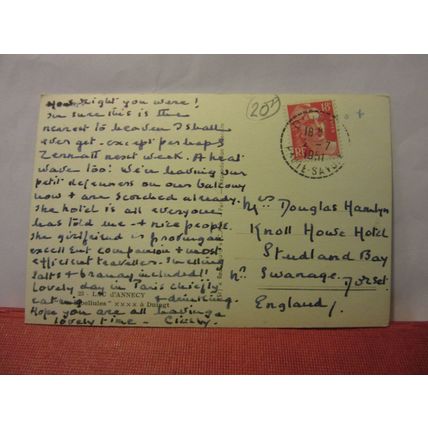 How right you were!
I'm sure this is the
nearest to heaven I shall
ever get - except perhaps
Zermatt next week. A heat
wave too! We're having our
petit dejeuners on our balcony
now + are scorched already.
The hotel is all everyone
has told me - + nice people.
The girlfriend is proving an
excellent companion + most
efficient traveller. Smelling
salts + brandy included!!
Lovely day in Paris chiefly
eating + drinking.
Hope you are all having a
lovely time -
20
18F
18 H
-7
1951
HTE SAVOIE
Mrs Douglas Hamlyn
Knoll House Hotel
Studland Bay
Nr. Swanage. Dorset
England
25 - LAC d'ANNECY
xxxx à Duingt